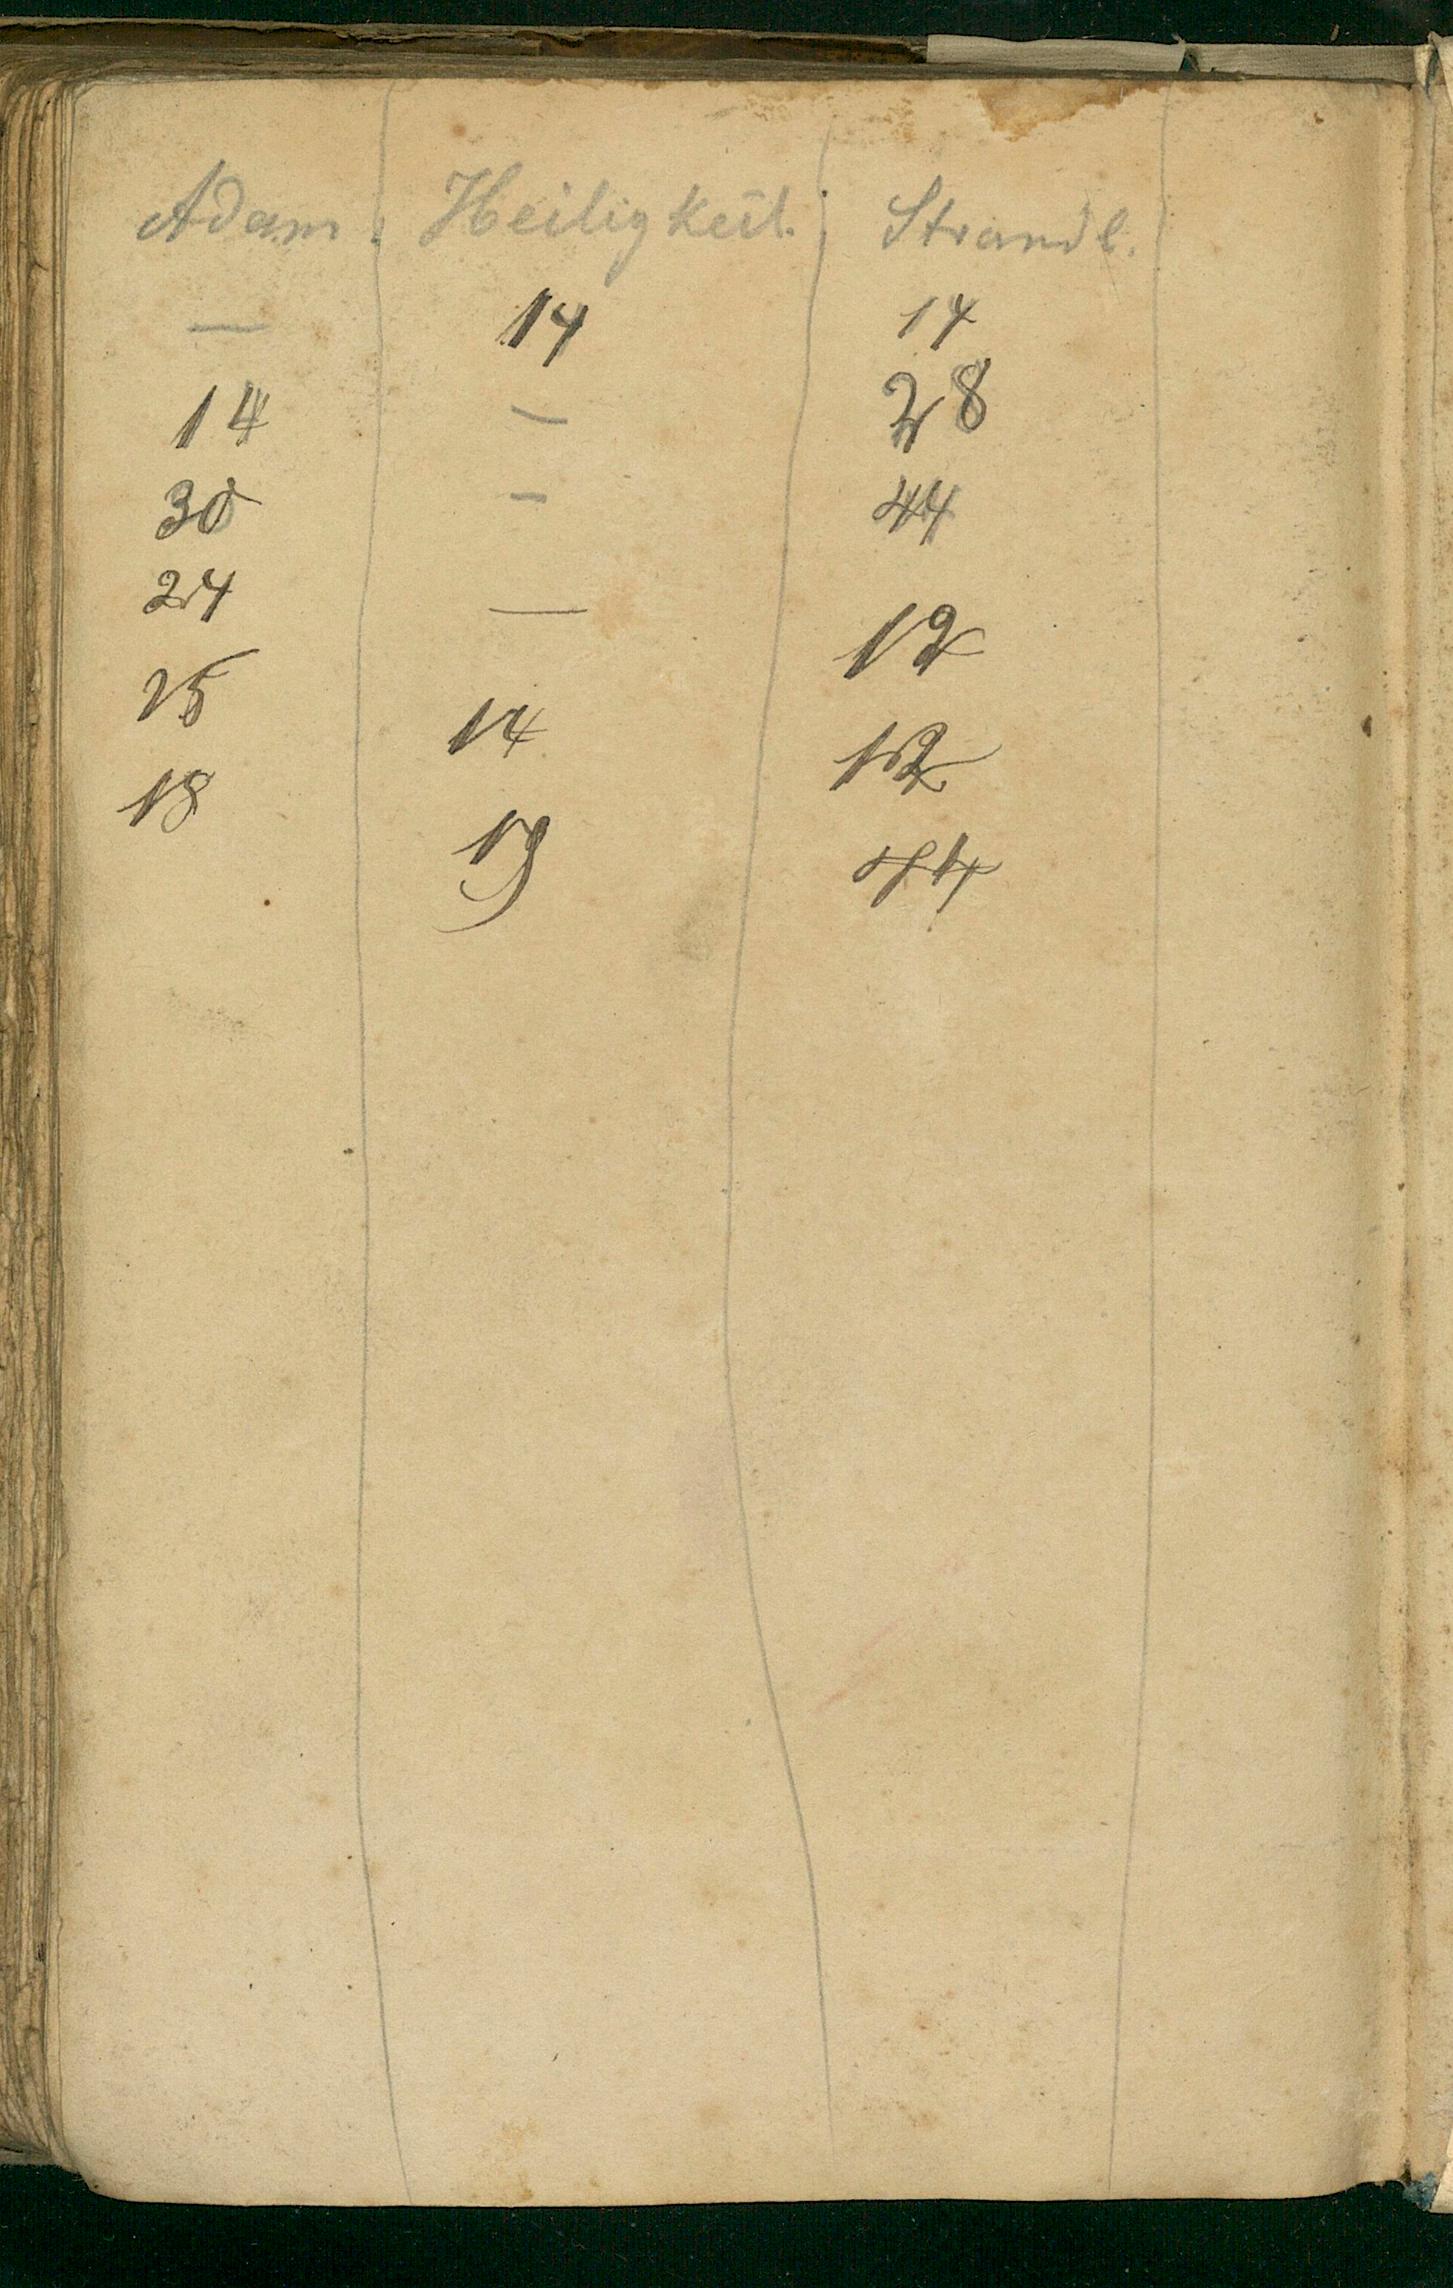 Adam Heiligkeit. Strandl.
— 14 14
14 — 28
30 — 44
24 — 12
25 14 12
18 19